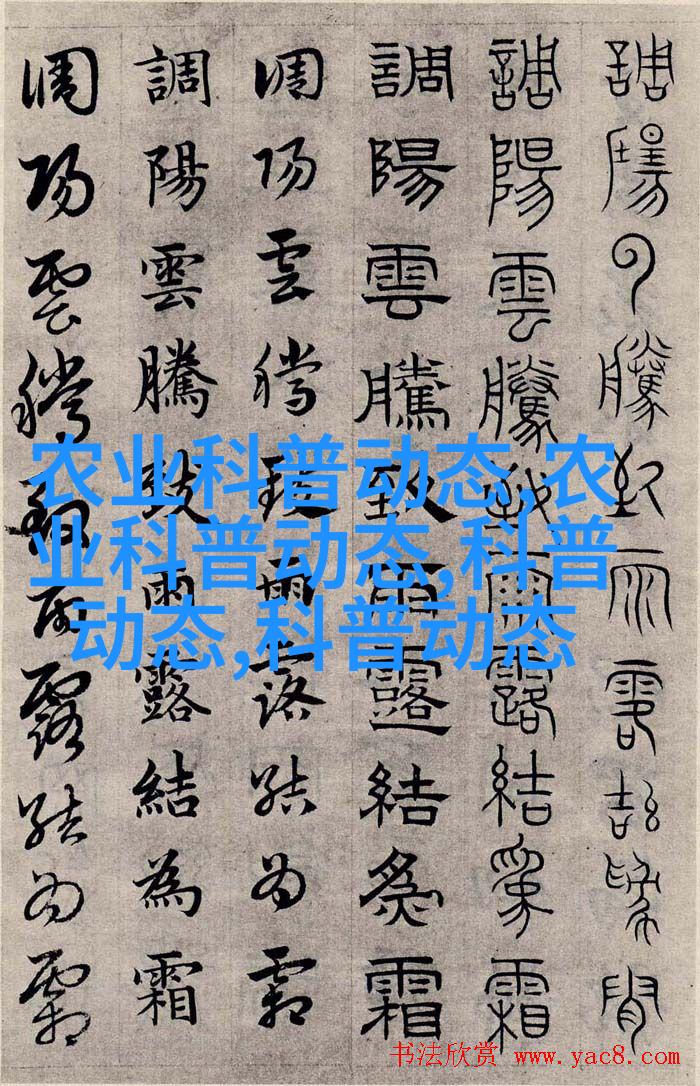 調陽雲騰致雨露結為霜
調陽雲騰致雨露結為霜
調陽雲騰致雨露結為霜
調陽雲騰致雨露結為霜
調陽雲騰致雨露結為霜
調陽雲騰致雨露結為霜
农业科普动态,农
业科普动态,科普
动态,科普动态
书法欣赏 www.yac8.com